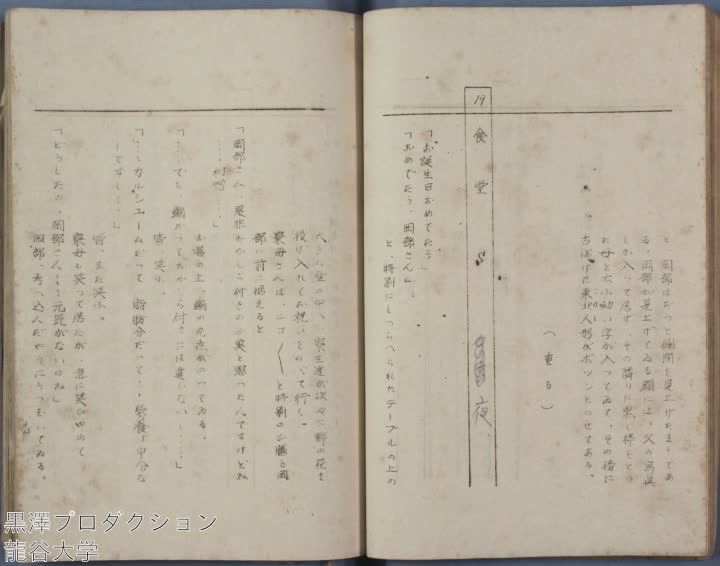 と、岡部はぢつと欄間を見上げたまゝであ
る。岡部が見上げてゐる額には、父の写真
しか入つて居ず、その隣りに黒い枠をとつ
た母と云ふ幼い字が入つてゐて、その横に
古ぼけた東北人形がポツンとのせてある。
(重る)
19 食堂 夜
「お誕生日おめでたう」
「おめでたう、岡部さん」
と、特別にしつらへられたテーブルの上の
大きな の中へ、寮生達が次々に野の花を
投げ入れてお祝ひをのべて行く。
寮母さんは、ニコ/\と特別のお膳を岡
部の前に据えると
「岡部さん、尾頭おかしら付きの と思つたんですけどね
……」
お膳の上、鰯の丸煮がのつてゐる。
「……でも、鰯だつておかしら付きには違ひない……」
皆、笑ふ。
「……カルシュームだつて、脂肪分だつて……栄養は申分な
しですし……」
皆、また笑ふ。
寮母も笑つて居たが、急に笑ひやめて
「どうしたの、岡部さん……元気がないのね」
岡部、考へ込んだやうにうつむいてゐる。
黒澤プロダクション
龍谷大学